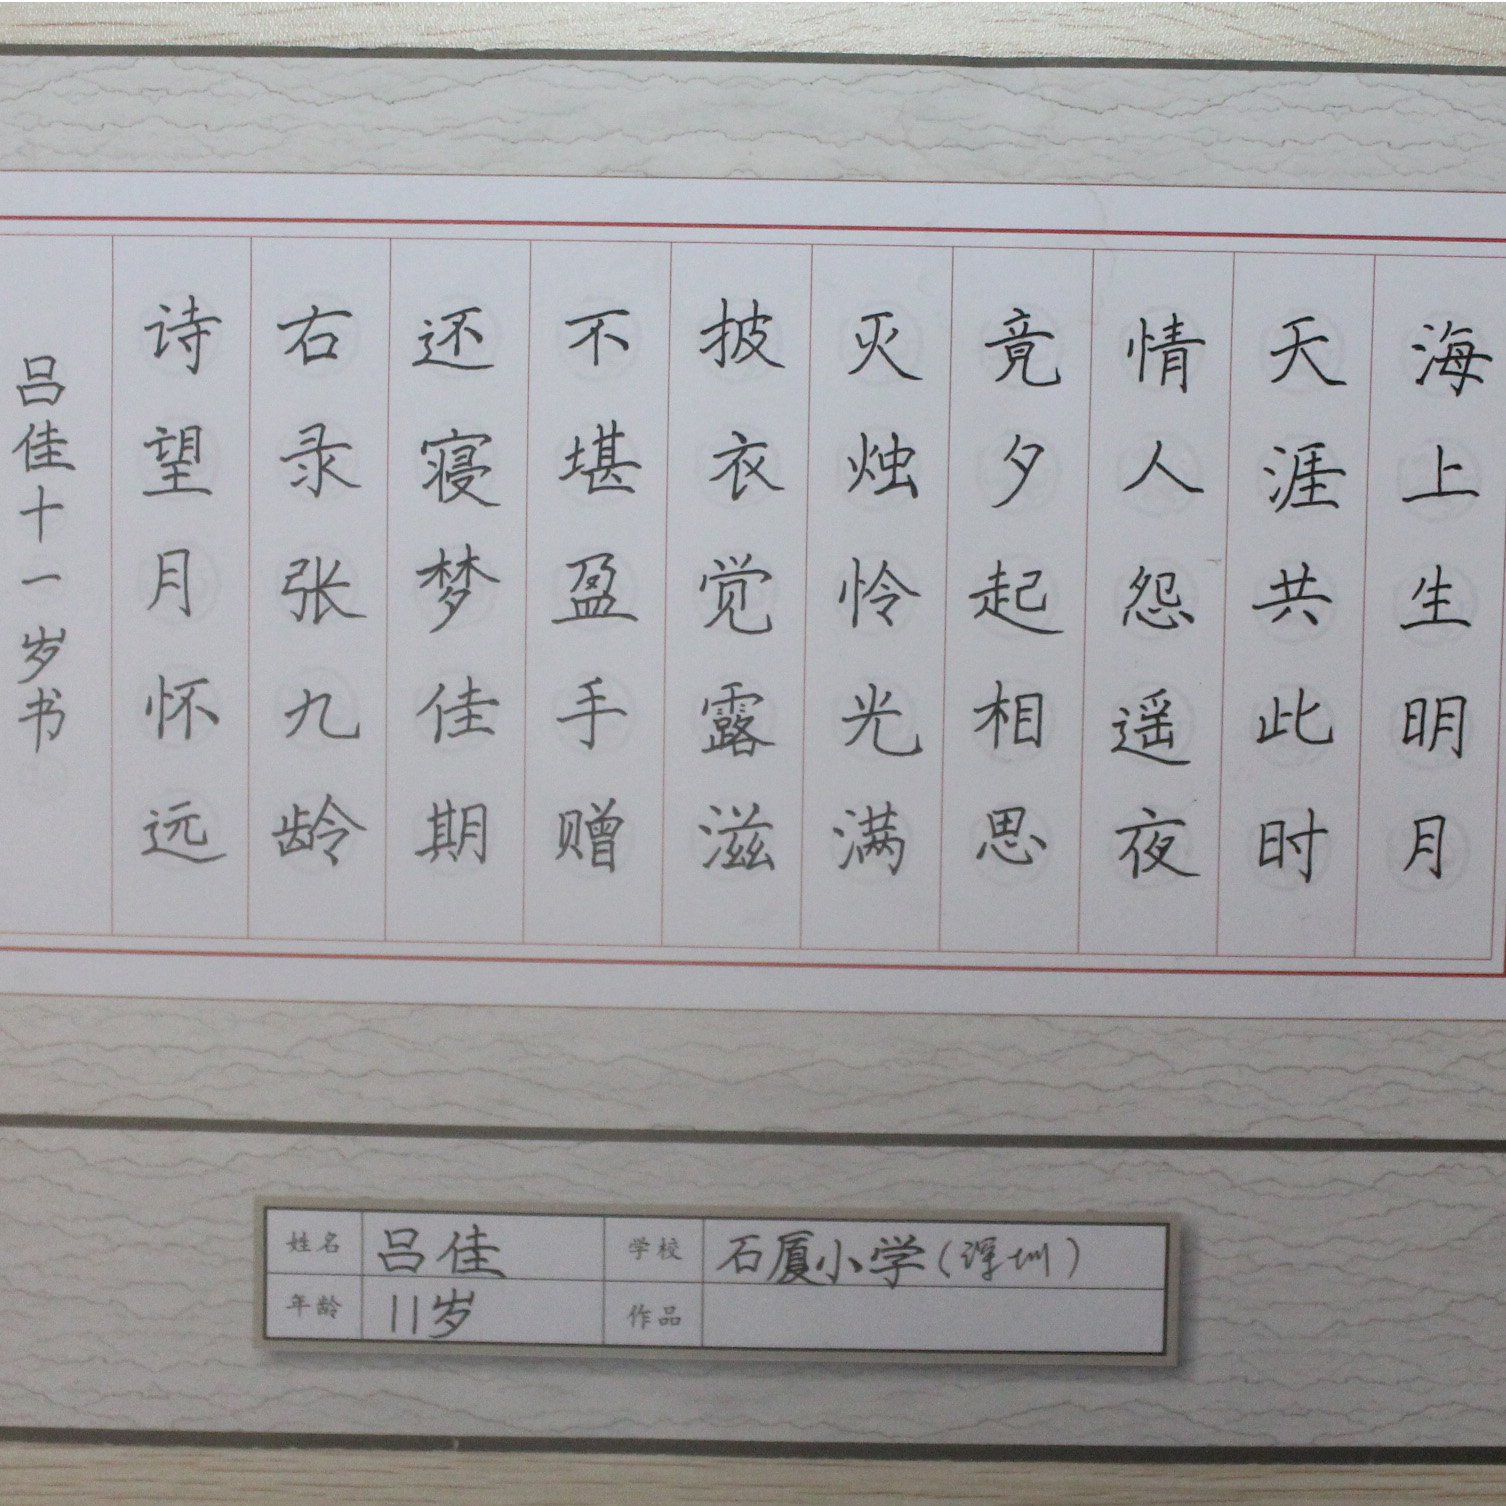 海上生明月
天涯共此时
情人怨遥夜
竟夕起相思
灭烛怜光满
披衣觉露滋
不堪盈手赠
还寝梦佳期
右录张九龄
诗望月怀远
吕佳十一岁书
姓名 吕佳 学校 石厦小学(深圳)
年龄 11岁 作品